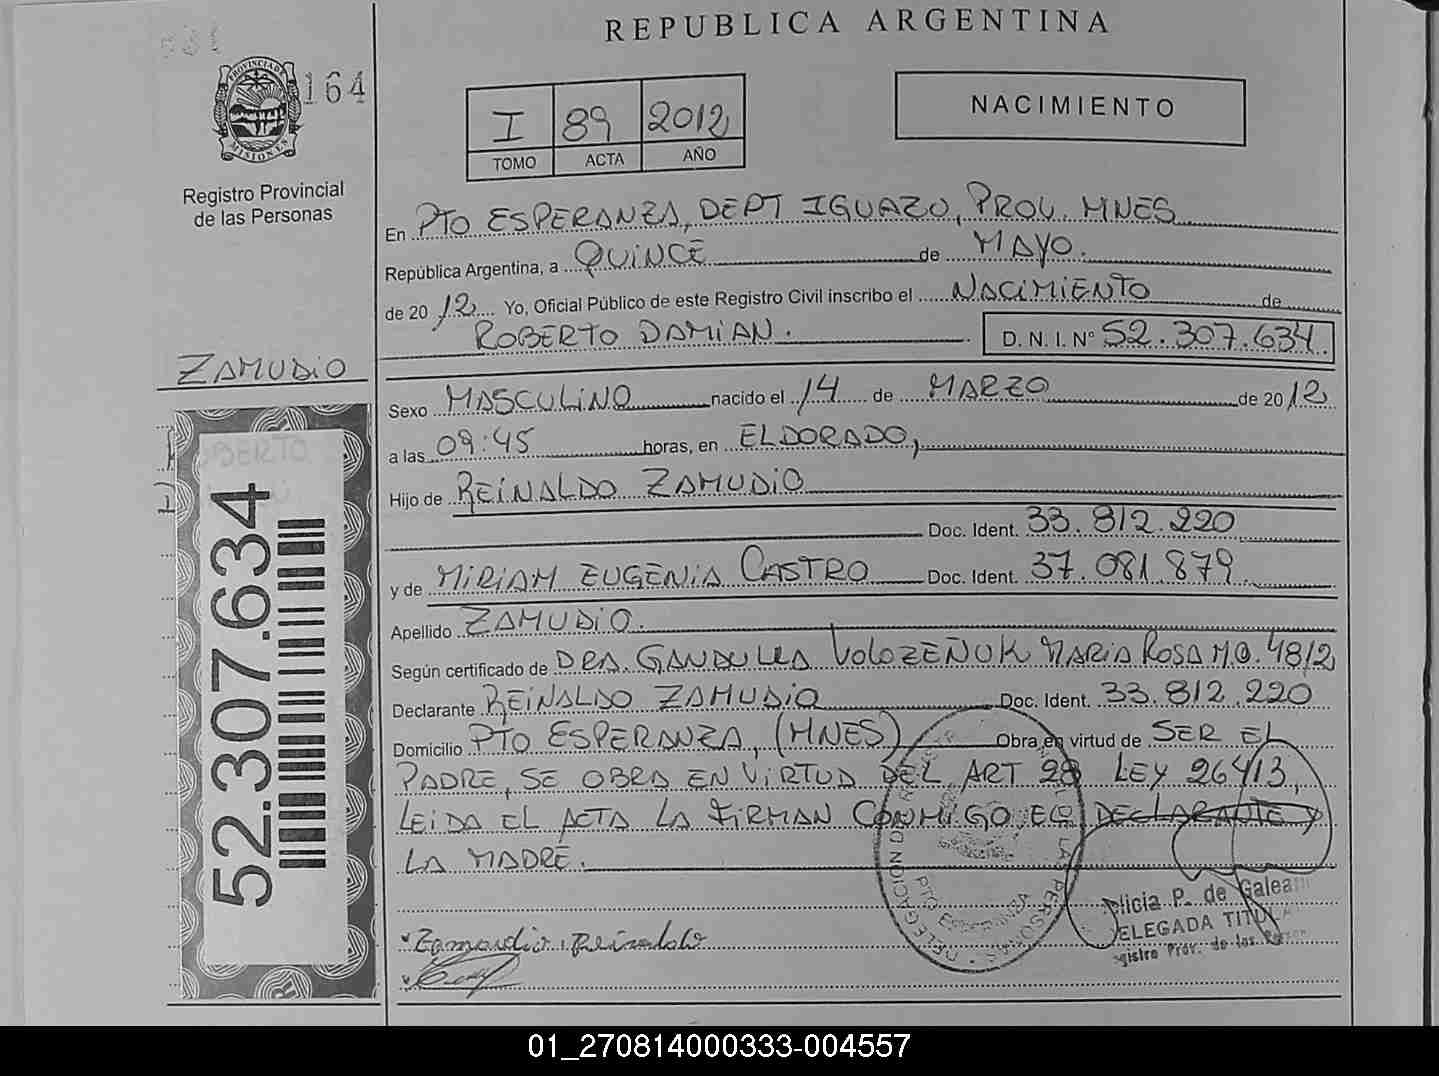 REPUBLICA ARGENTINA
164
PROVINCIA DE MISIONES
Registro Provincial
de las Personas
I 89 2012
TOMO ACTA AÑO
NACIMIENTO
En PTO ESPERANZA, DEPT IGUAZO, PROV. MNES
República Argentina, a QUINCE de MAYO.
de 2012 Yo, Oficial Público de este Registro Civil inscribo el NACIMIENTO de
ROBERTO DAMIAN. D. N. I. Nº 52.307.634
ZAMUDIO
Sexo MASCULINO nacido el 14 de MARZO de 2012
a las 09:45 horas, en ELDORADO,
ROBERTO
Hijo de REINALDO ZAMUDIO
Doc. Ident. 33.812.220
y de MIRIAM EUGENIA CASTRO Doc. Ident. 37.081.879
Apellido ZAMUDIO.
52.307.634
Según certificado de DRA. GANDULLA VOLOZEÑUK MARIA ROSA M.O. 4812
Declarante REINALDO ZAMUDIO Doc. Ident. 33.812.220
Domicilio PTO ESPERANZA, (MNES) Obra en virtud de SER EL
PADRE, SE OBRA EN VIRTUD DEL ART 28 LEY 26413,
LEIDA EL ACTA LA FIRMAN CONMIGO, EL DECLARANTE Y
LA MADRE.
Zamudio Reinaldo
DELEGACION PTO ESPERANZA PERSONAS
licia P. de Galea
ELEGADA TITULA
gistro Prov. de las Person
01_270814000333-004557